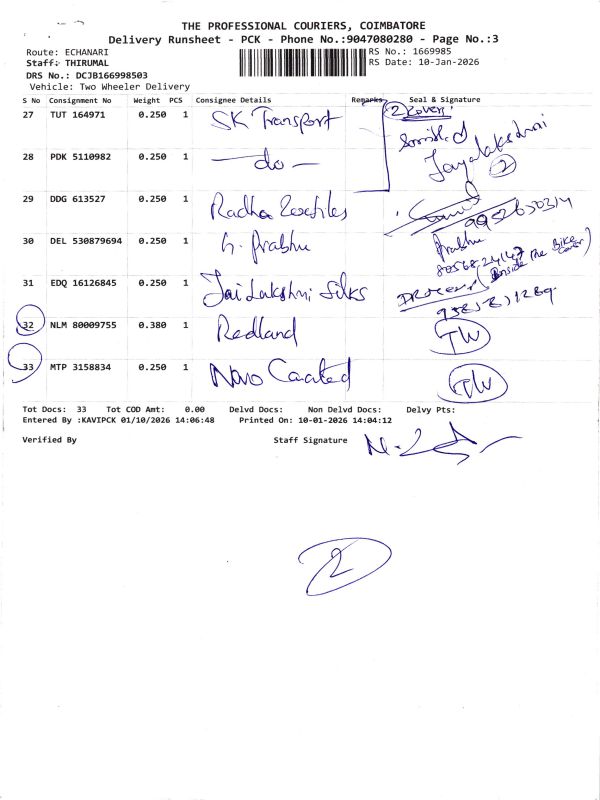 THE PROFESSIONAL COURIERS, COIMBATORE
Delivery Runsheet - PCK - Phone No.:9047080280 - Page No.:3
Route: ECHANARI RS No.: 1669985
Staff: THIRUMAL RS Date: 10-Jan-2026
DRS No.: DCJB166998503
Vehicle: Two Wheeler Delivery
S No Consignment No Weight PCS Consignee Details Remarks Seal & Signature
27 TUT 164971 0.250 1 SK Transport
2 Covers
28 PDK 5110982 0.250 1 — do —
Jayalakshmi
2
29 DDG 613527 0.250 1 Radha Textiles
9952650314
30 DEL 530879694 0.250 1 G. Prabhu Prabhu
31 EDQ 16126845 0.250 1 Jai Lakshmi Silks
(Inside the Bike Cover)
32 NLM 80009755 0.380 1 Redland TW
33 MTP 3158834 0.250 1 Novo TW
Tot Docs: 33 Tot COD Amt: 0.00 Delvd Docs: Non Delvd Docs: Delvy Pts:
Entered By :KAVIPCK 01/10/2026 14:06:48 Printed On: 10-01-2026 14:04:12
Verified By Staff Signature
2